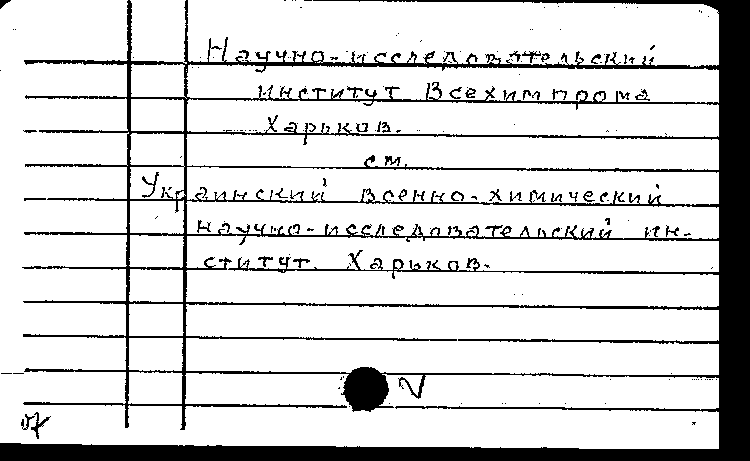 Научно-исследовательский
институт Всехимпрома
Харьков.
см.
Украинский военно-химический
научно-исследовательский ин-
ститут. Харьков.
V